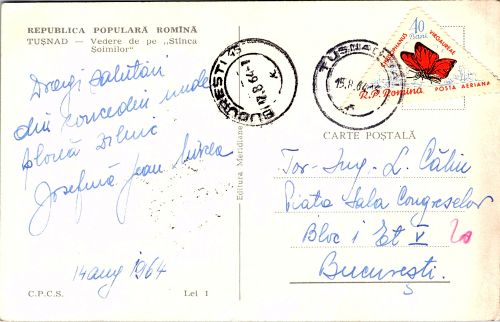 REPUBLICA POPULARĂ ROMÎNĂ
TUŞNAD — Vedere de pe „Stînca
Şoimilor”
Dragi salutări
din concediu unde
plouă zilnic
Josefină Jean Mircea
14 aug 1964
C.P.C.S.
Lei 1
Editura Meridiane
BUCUREŞTI 45
17.8.64
TUŞNAD
15.8.64
40 Bani
CHRYSOPHANUS VIRGAUREAE
R.P. Romina
POSTA AERIANA
CARTE POŞTALĂ
Tov. Ing. L. Călin
Piata Sala Congreselor
Bloc 1 Et V
20
Bucureşti.